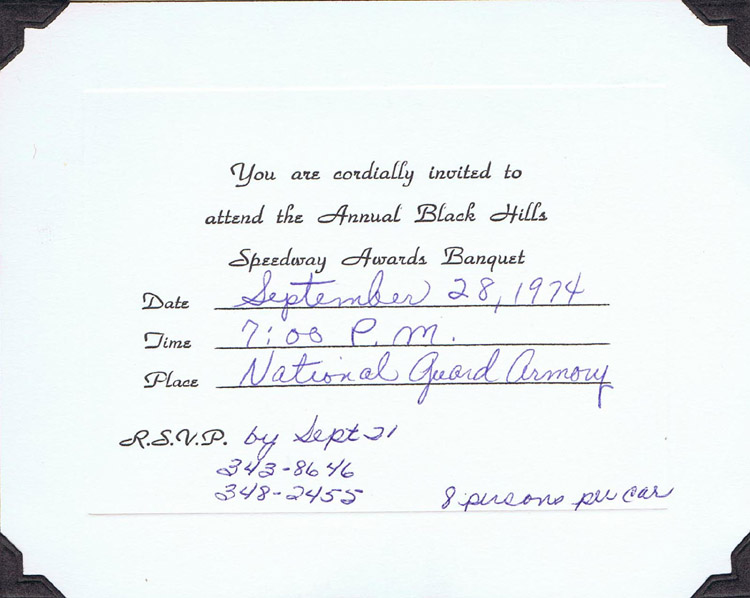 You are cordially invited to
attend the Annual Black Hills
Speedway Awards Banquet
Date September 28, 1974
Time 7:00 P.M.
Place National Guard Armory
R.S.V.P. by Sept 21
343-8646
348-2455
8 persons per car